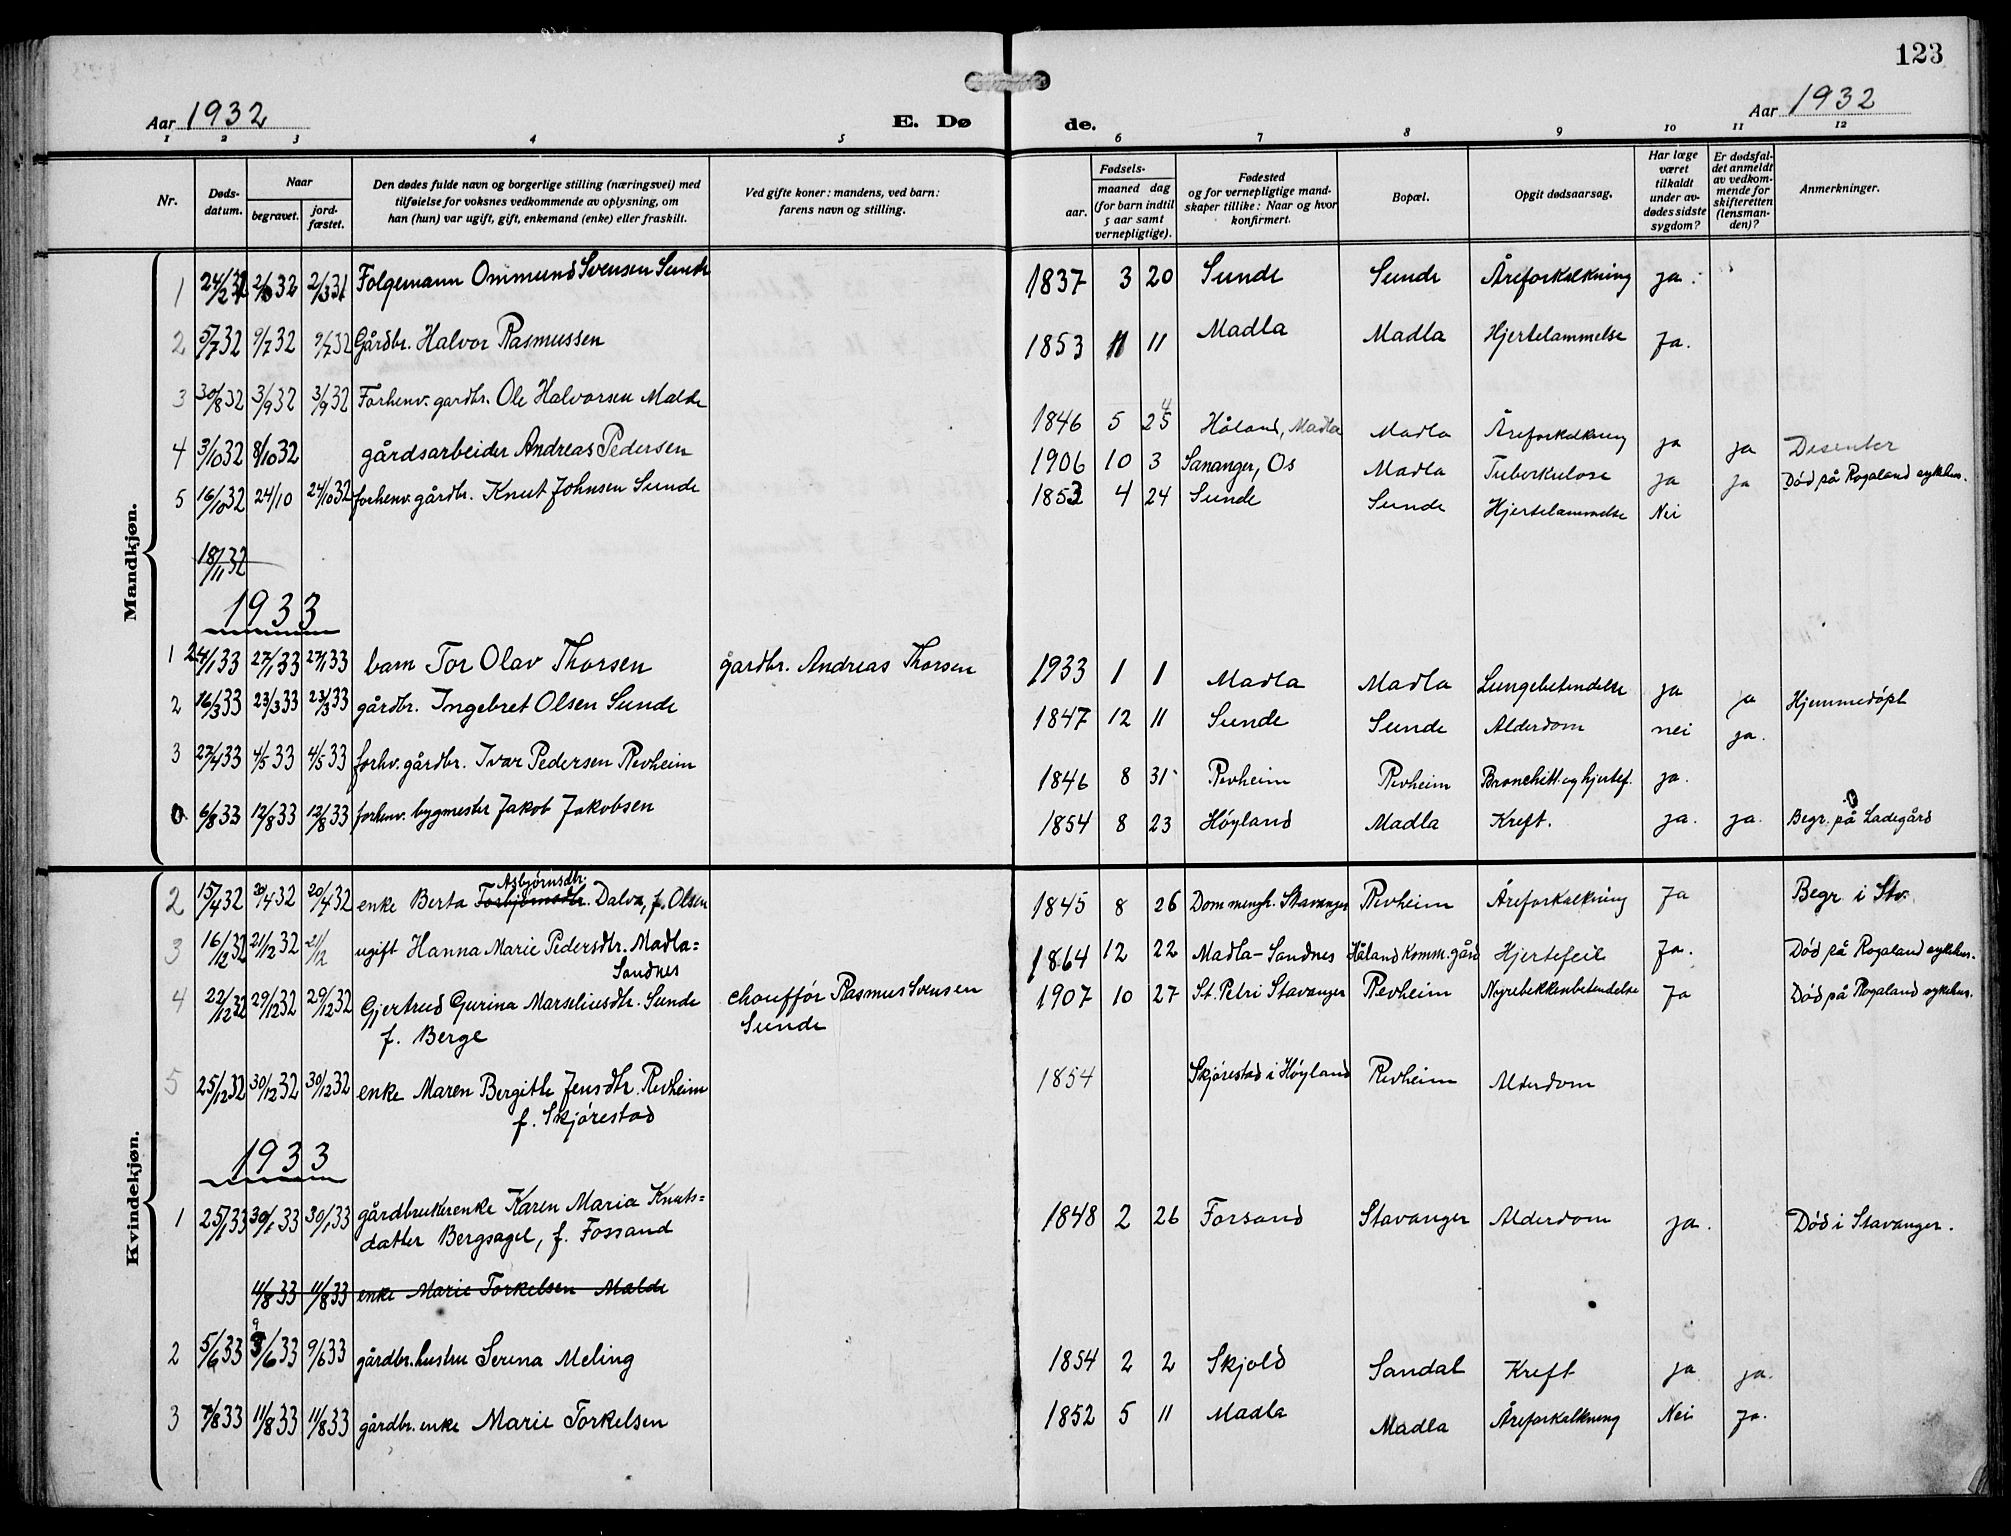 123
Aar 1932 E. Døde. Aar 1932
1 2 3 4 5 6 7 8 9 10 11 12
Nr.
Døds-datum.
Naar
begravet.
jord-fæstet.
Den dødes fulde navn og borgerlige stilling (næringsvei) med
tilføielse for voksnes vedkommende av oplysning, om
han (hun) var ugift, gift, enkemand (enke) eller fraskilt.
Ved gifte koner: mandens, ved barn:
farens navn og stilling.
Fødsels-
aar.
maaned dag
(for barn indtil
5 aar samt
vernepligtige).
Fødested
og for vernepligtige mand-
skaper tillike: Naar og hvor
konfirmert.
Bopæl.
Opgit dødsaarsag.
Har læge
været
tilkaldt
under av-
dødes sidste
sygdom?
Er dødsfal-
det anmeldt
av vedkom-
mende for
skifteretten
(lensman-
den)?
Anmerkninger.
Mandkjøn.
1 24/2 2/3 32 2/3 31 Følgemann Ommund Svensen Sunde 1837 3 20 Sunde Sunde Åreforkalkning ja.
2 5/7 32 9/7 32 9/7 32 Gårdbr. Halvor Rasmussen 1853 11 11 Madla Madla Hjertelammelse Ja.
3 30/8 32 3/9 32 3/9 32 Forhenv. gardbr. Ole Halvorsen Malde 1846 5 25 4 Håland, Madla Madla Åreforkalkning ja ja Disenter
4 3/10 32 8/10 32 gårdsarbeider Andreas Pedersen 1906 10 3 Sananger, Os Madla Tuberkulose ja ja Død på Rogaland sykehus.
5 16/10 32 24/10 24/10 32 forhenv. gårdbr. Knut Johnsen Sunde 1853 4 24 Sunde Sunde Hjertelammelse Nei
18/11 32
1933
1 24/1 33 27/1 33 27/1 33 barn Tor Olav Thorsen gardbr. Andreas Thorsen 1933 1 1 Madla Madla Lungebetendelse ja ja Hjemmedøpt
2 16/3 33 23/3 33 23/3 33 gårdbr. Ingebret Olsen Sunde 1847 12 11 Sunde Sunde Alderdom nei ja.
3 27/4 33 4/5 33 4/5 33 forhv. gårdbr. Ivar Pedersen Revheim 1846 8 31 Revheim Revheim Bronchitt og hjertef. ja.
0 6/8 33 12/8 33 12/8 33 forhenv. bygmester Jakob Jakobsen 1854 8 23 Høyland Madla Kreft. ja. ja. 0 Begr. på Ladegård
Kvindekjøn.
Asbjørnsdtr.
2 15/4 32 20/4 32 20/4 32 enke Berta Torbjørnsdtr. Dalva, f. Olsen 1845 8 26 Dommengh. Stavanger Revheim Åreforkalkning Ja Begr. i Stv.
3 16/12 32 21/12 32 21/12 ugift Hanna Marie Pedersdtr. Madla= 1864 12 22 Madla-Sandnes Håland komm. gård Hjertefeil Ja. Død på Rogaland sykehus.
Sandnes
4 22/12 32 29/12 32 29/12 32 Gjertrud Gurina Marseliusdtr. Sunde chouffør Rasmus Svensen 1907 10 27 St. Petri Stavanger Revheim Nyrebekkenbetendelse Ja Død på Rogaland sykehus.
f. Berge Sunde
5 25/12 32 30/12 32 30/12 32 enke Maren Bergitte Jensdtr. Revheim 1854 Skjørestad i Høyland Revheim Alderdom
f. Skjørestad
1933
1 25/1 33 30/1 33 30/1 33 gårdbrukerenke Karen Maria Knuts= 1848 2 26 Forsand Stavanger Alderdom ja. Død i Stavanger.
datter Bergsagel, f. Fossand
11/8 33 11/8 33 enke Marie Torkelsen Malde
2 5/6 33 9/6 33 9/6 33 gårdbr.hustru Serina Meling 1854 2 2 Skjold Sandal Kreft ja ja.
3 7/8 33 11/8 33 11/8 33 gårdbr. enke Marie Torkelsen 1852 5 11 Madla Madla Åreforkalkning Nei Ja.